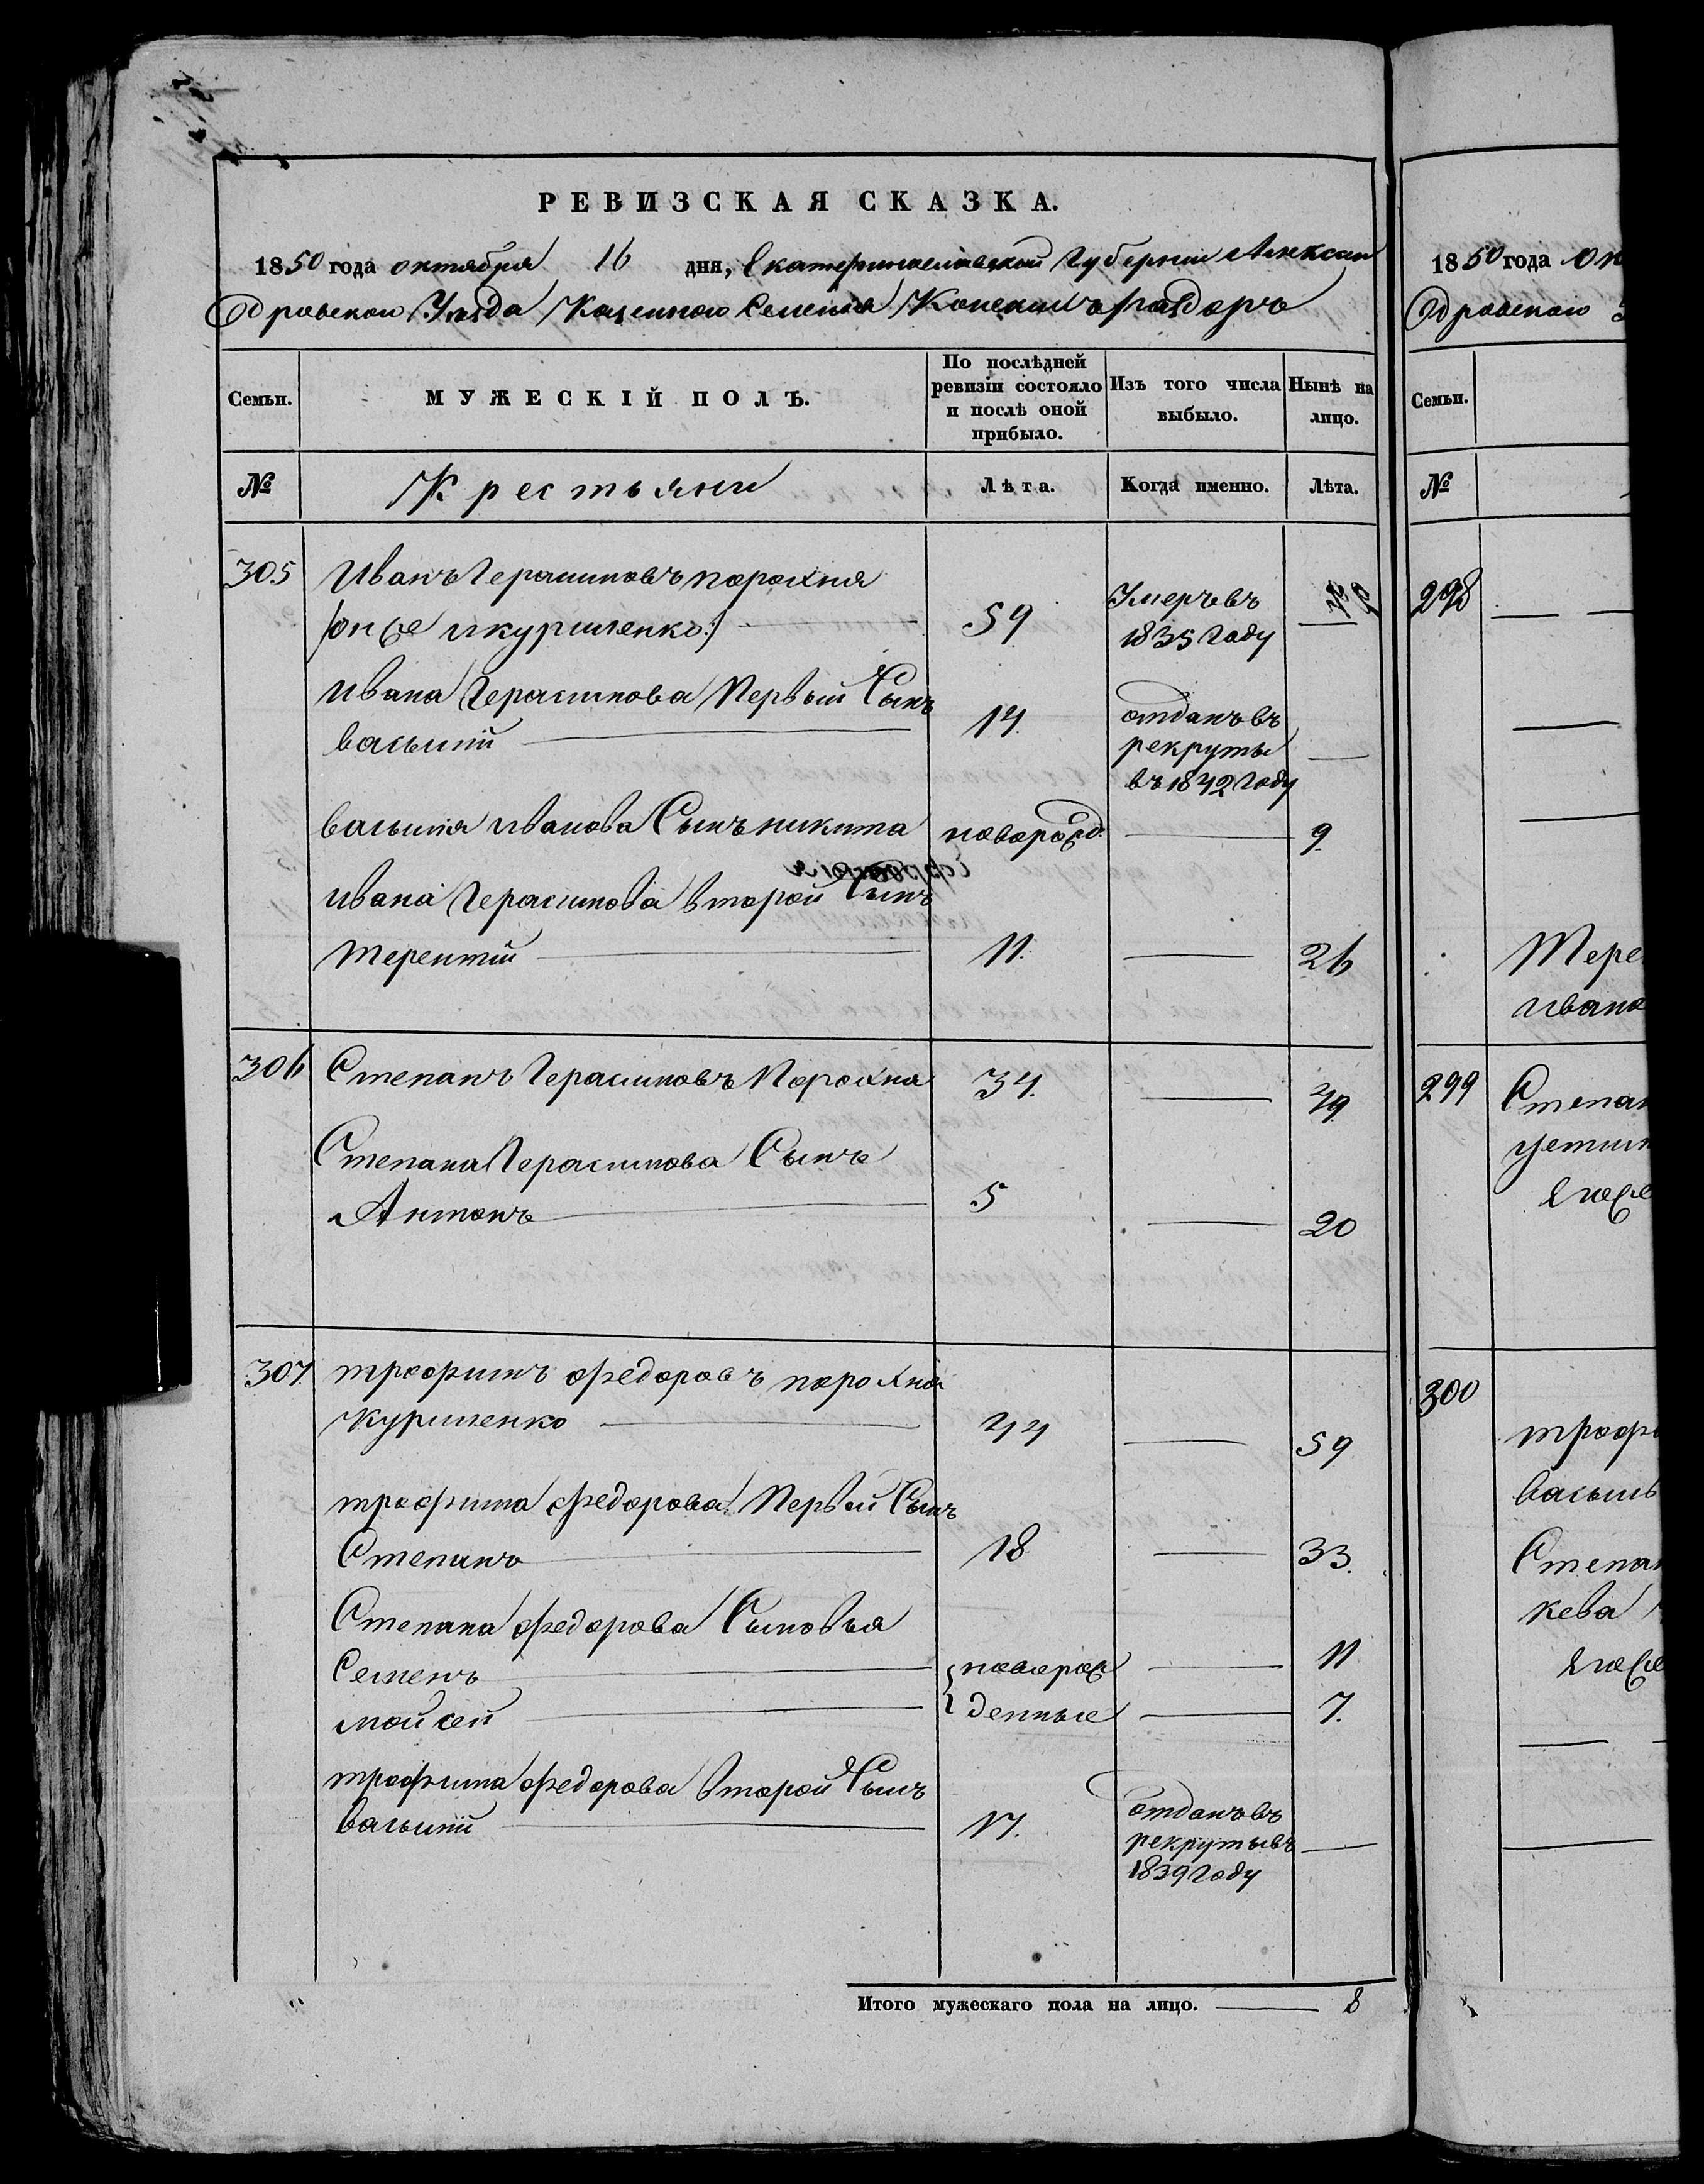 РЕВИЗСКАЯ СКАЗКА.
1850 года октября 16 дня, Екатеринославской Губернии Алексан
дровского Уезда Казенного Селения Конских Раздоръ
Семьи.
МУЖЕСКІЙ ПОЛЪ.
По послѣдней ревизіи состояло и послѣ оной прибыло.
Изъ того числа выбыло.
Нынѣ на лицо.
№
Крестьяни
Лѣта.
Когда именно.
Лѣта.
305 Иванъ Герасимовъ порохня
/онже и курипенко:/ 59 Умеръ въ
1835 Году
Ивана Герасимова Первый Сынъ
василий 14 отданъ въ
рекруты
въ 1842 Году
василия Иванова Сынъ никита новорожд: 9.
Ивана Герасимова второй Сынъ
терентий 11. 26
306 Степанъ Герасимовъ Порохня 34. 49.
Степана Герасимова Сынъ
Антонъ 5 20
307. трофимъ федоровъ порохня
Курипенко 44 59
трофима федорова Первый Сынъ
Степанъ 18 33.
Степана федорова Сыновья
Семенъ новорож 11
мойсей денные 7.
трофима федорова второй Сынъ
василий 17. отданъ въ
рекруты въ
1839 Году
Итого мужескаго пола на лицо. 8
1850 года Ок
дровского
Семьи.
№
298
Тере
Ивано
299 Степан
Устин
Ягоже
300
трофи
василь
Степан
кева
Ягоже